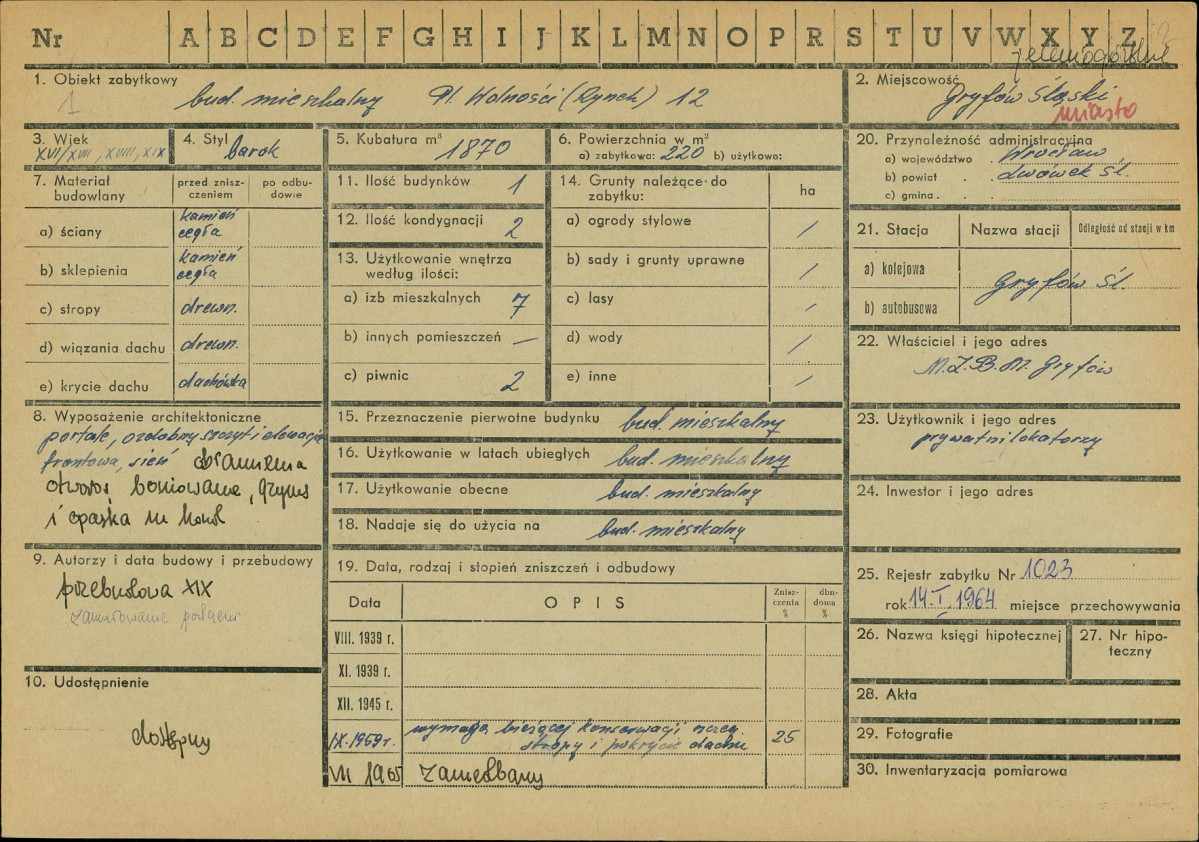 Nr A B C D E F G H I J K L M N O P R S T U V W X Y Z
jeleniogórskie
1. Obiekt zabytkowy
1
bud. mieszkalny Pl. Wolności (Rynek) 12
2. Miejscowość
Gryfów Śląski
miasto
3. Wiek
XVI/XVII, XVIII, XIX
4. Styl barok
5. Kubatura m³ 1870
6. Powierzchnia w m²
a) zabytkowa: 220 b) użytkowa:
20. Przynależność administracyjna
a) województwo . Wrocław
b) powiat . . Lwówek Śl.
c) gmina . . .
7. Materiał budowlany
przed zniszczeniem
po odbudowie
a) ściany kamień cegła
b) sklepienia kamień cegła
c) stropy drewn.
d) wiązania dachu drewn.
e) krycie dachu dachówka
11. Ilość budynków 1
12. Ilość kondygnacji 2
13. Użytkowanie wnętrza według ilości:
a) izb mieszkalnych 7
b) innych pomieszczeń —
c) piwnic 2
14. Grunty należące do zabytku:
ha
a) ogrody stylowe /
b) sady i grunty uprawne /
c) lasy /
d) wody /
e) inne /
21. Stacja
Nazwa stacji
Odległość od stacji w km
a) kolejowa
b) autobusowa
Gryfów Śl.
22. Właściciel i jego adres
M.Z.B.M. Gryfów
8. Wyposażenie architektoniczne
portale, ozdobny szczyt i elewacja
frontowa, sień obramienia
otworów boniowane, gzyms
i opaska
15. Przeznaczenie pierwotne budynku bud. mieszkalny
16. Użytkowanie w latach ubiegłych bud. mieszkalny
17. Użytkowanie obecne bud. mieszkalny
18. Nadaje się do użycia na bud. mieszkalny
23. Użytkownik i jego adres
prywatni lokatorzy
24. Inwestor i jego adres
9. Autorzy i data budowy i przebudowy
przebudowa XIX
zamurowanie podcieni
19. Data, rodzaj i stopień zniszczeń i odbudowy
Data
OPIS
Zniszczenia %
dbudowa %
VIII. 1939 r.
XI. 1939 r.
XII. 1945 r.
IX. 1959 r. wymaga bieżącej konserwacji szczeg.
stropy i pokrycie dachu 25
VII 1965 zaniedbany
25. Rejestr zabytku Nr 1023
rok 14.I.1964 miejsce przechowywania
26. Nazwa księgi hipotecznej
27. Nr hipoteczny
10. Udostępnienie
dostępny
28. Akta
29. Fotografie
30. Inwentaryzacja pomiarowa